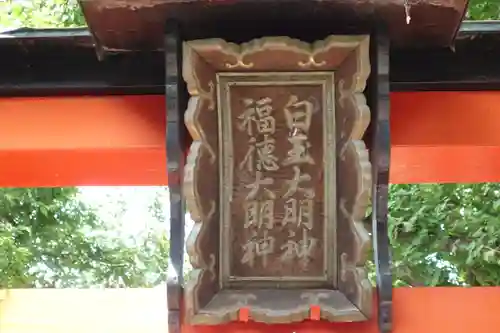 白玉大明神
福徳大明神